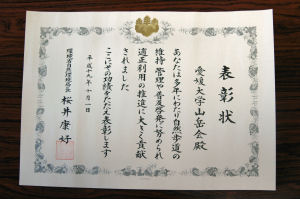 表彰状
愛媛大学山岳会殿
あなたは多年にわたり自然歩道の
維持管理や普及啓発に努められ
適正利用の推進に大きく貢献
されました
ここにその功績をたたえ表彰します
平成十九年十月一日
環境省自然環境局長
桜井康好